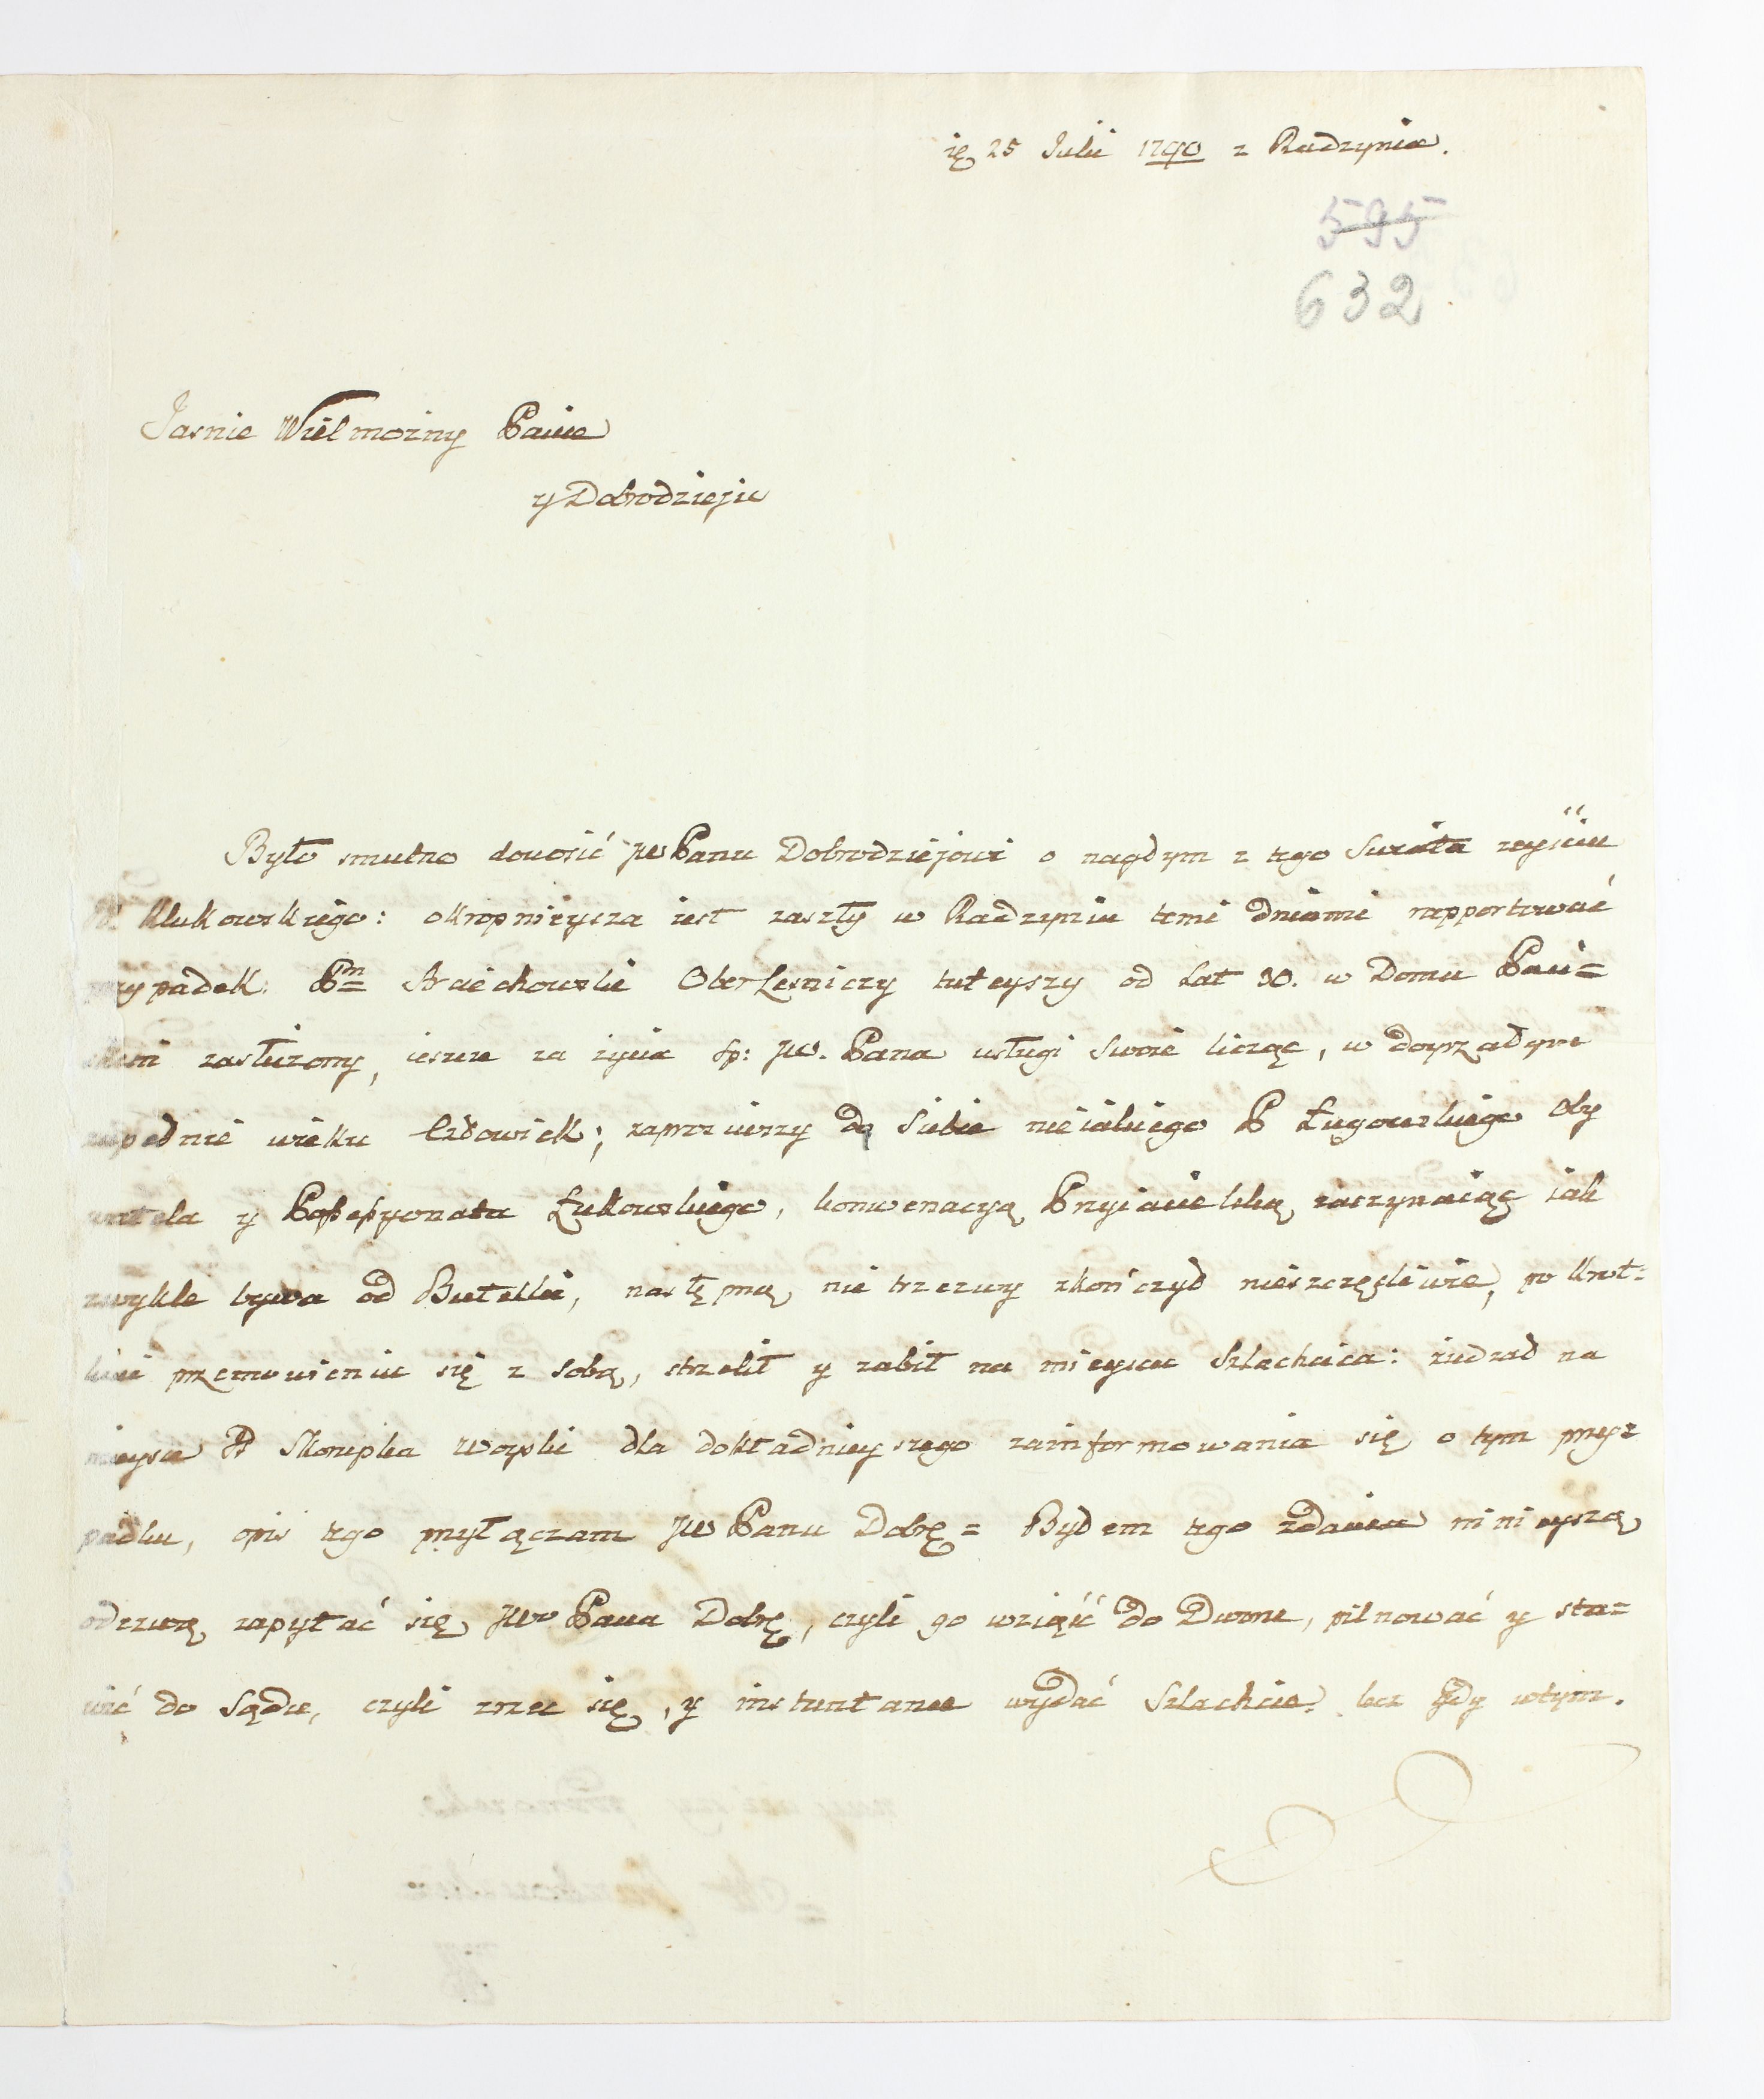 25 Julii 1790 z Radzynia.
595
632
Jasnie Wielmożny Panie
y Dobrodzieju
Było smutno donosić JW Panu Dobrodziejowi o nagłym z tego Swiata zeyściu
P. Klukowskiego: okropnieysza iest zaszły w Radzyniu temi dniami rapportować
przypadek: Pn Oberlesniczy tuteyszy od lat 30. w Domu Pań=
skim zasłużony, ieszcze za życia sp: JW. Pana usługi swoie licząc, w doyrzałym
zupełnie wieku Człowiek; zaprosiwszy do Siebie nieiakiego P Ługowskiego Oby
watela y Łukowskiego, konwersacyą Przyiacielską zaczynaiąc iak
zwykle bywa od Butelki, nie trzezwy zkończył nieszczęsliwie, po krot=
kim przemowieniu się z sobą, strzelił y zabił na mieyscu Szlachcica: ziechał na
mieysce P Skorupka Woyski dla dokładnieyszego zainformowania się o tym przy=
padku, opis tego przyłączam JW Panu Dobrę= Byłem tego zdania ninieyszą
odezwą zapytać się JW Pana Dobrę, czyli go wziąść do Dworu, pilnować y sta=
wić do Sądu, czyli zrzec się, y wydać Szlachcie. lecz gdy wtym.